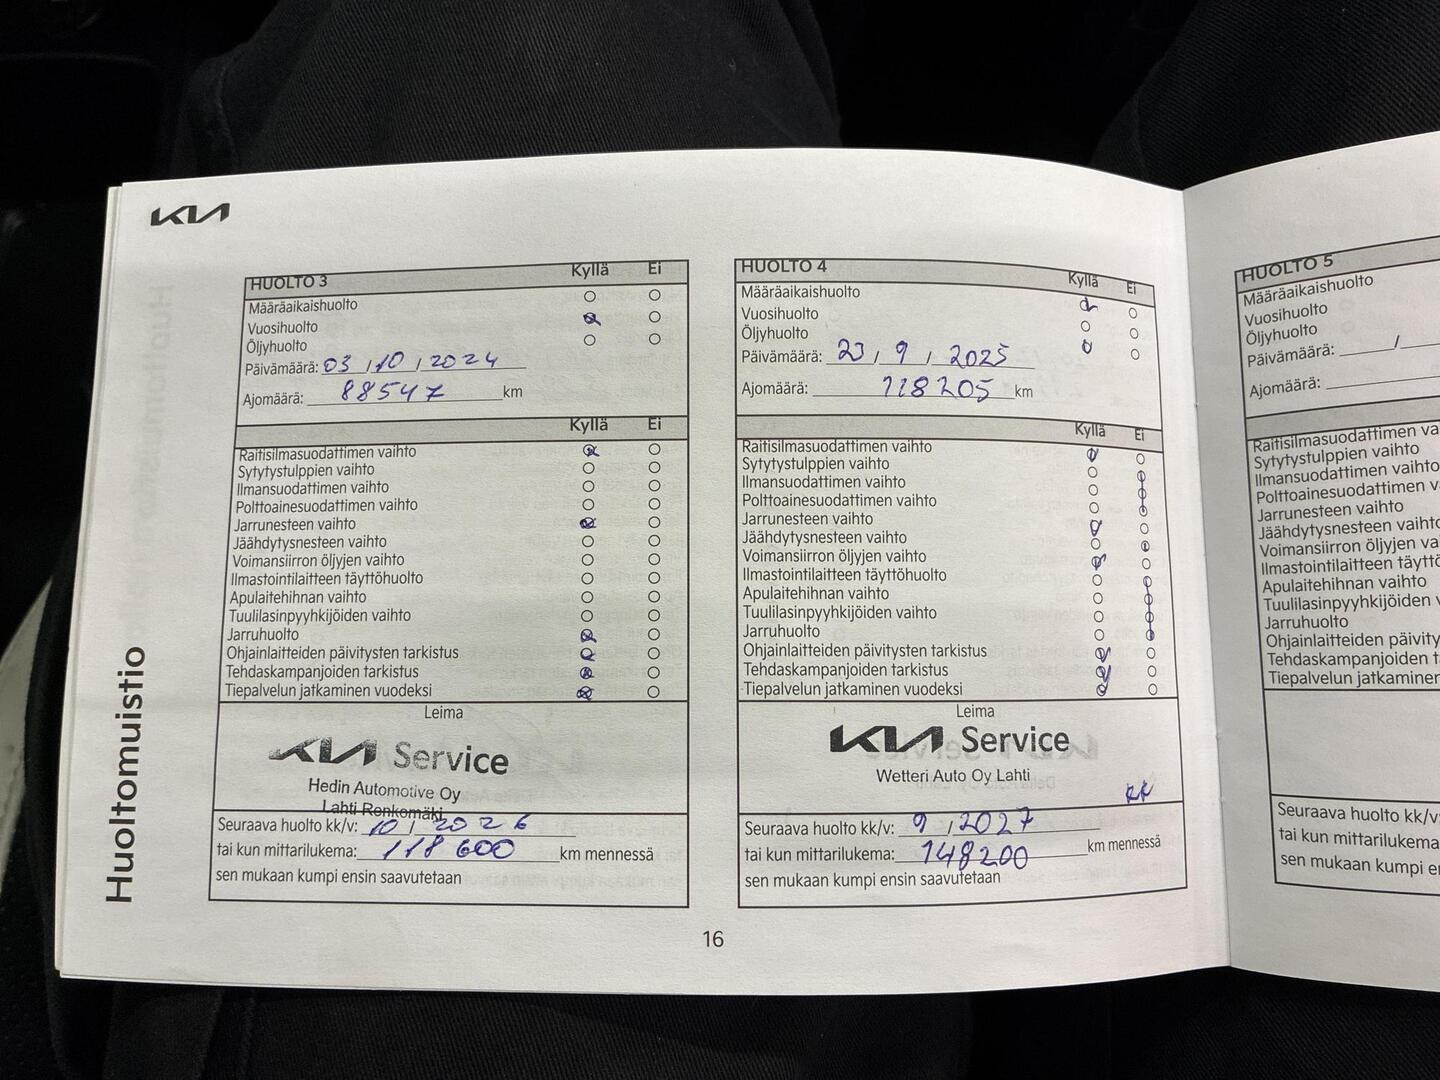 KIA
Huoltomuistio
HUOLTO 3
Kyllä Ei
Määräaikaishuolto
Vuosihuolto
Öljyhuolto
Päivämäärä: 03 / 10 / 2024
Ajomäärä: 88547 km
Kyllä Ei
Raitisilmasuodattimen vaihto
Sytytystulppien vaihto
Ilmansuodattimen vaihto
Polttoainesuodattimen vaihto
Jarrunesteen vaihto
Jäähdytysnesteen vaihto
Voimansiirron öljyjen vaihto
Ilmastointilaitteen täyttöhuolto
Apulaitehihnan vaihto
Tuulilasinpyyhkijöiden vaihto
Jarruhuolto
Ohjainlaitteiden päivitysten tarkistus
Tehdaskampanjoiden tarkistus
Tiepalvelun jatkaminen vuodeksi
Leima
KIA Service
Hedin Automotive Oy
Lahti Renkomäki
Seuraava huolto kk/v: 10 / 2026
tai kun mittarilukema: 118 600 km mennessä
sen mukaan kumpi ensin saavutetaan
HUOLTO 4
Kyllä Ei
Määräaikaishuolto
Vuosihuolto
Öljyhuolto
Päivämäärä: 23 / 9 / 2025
Ajomäärä: 118205 km
Kyllä Ei
Raitisilmasuodattimen vaihto
Sytytystulppien vaihto
Ilmansuodattimen vaihto
Polttoainesuodattimen vaihto
Jarrunesteen vaihto
Jäähdytysnesteen vaihto
Voimansiirron öljyjen vaihto
Ilmastointilaitteen täyttöhuolto
Apulaitehihnan vaihto
Tuulilasinpyyhkijöiden vaihto
Jarruhuolto
Ohjainlaitteiden päivitysten tarkistus
Tehdaskampanjoiden tarkistus
Tiepalvelun jatkaminen vuodeksi
Leima
KIA Service
Wetteri Auto Oy Lahti
KK
Seuraava huolto kk/v: 9 / 2027
tai kun mittarilukema: 148200 km mennessä
sen mukaan kumpi ensin saavutetaan
16
HUOLTO 5
Määräaikaishuolto
Vuosihuolto
Öljyhuolto
Päivämäärä: /
Ajomäärä:
Raitisilmasuodattimen va
Sytytystulppien vaihto
Ilmansuodattimen vaihto
Polttoainesuodattimen v
Jarrunesteen vaihto
Jäähdytysnesteen vaihto
Voimansiirron öljyjen va
Ilmastointilaitteen täyttö
Apulaitehihnan vaihto
Tuulilasinpyyhkijöiden v
Jarruhuolto
Ohjainlaitteiden päivity
Tehdaskampanjoiden ta
Tiepalvelun jatkaminen
Seuraava huolto kk/v:
tai kun mittarilukema:
sen mukaan kumpi e